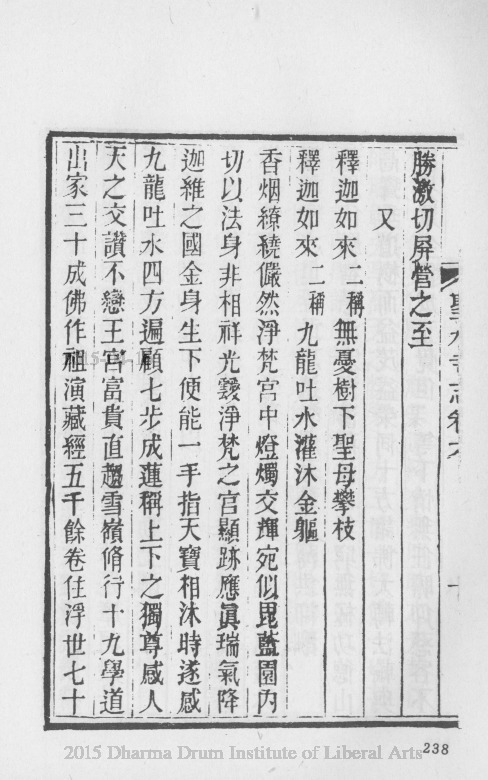 勝激切屏營之至
又
釋迦如來二稱無憂樹下聖母攀枝
釋迦如來二稱九龍吐水灌沐金軀
香烟繚繞儼然淨梵宮中燈燭交輝宛似毘藍園内
切以法身非相祥光靉淨梵之宮顯跡應眞瑞氣降
迦維之國金身生下便能一手指天寶相沐時遂感
九龍吐水四方遍顧七步成蓮稱上下之獨尊感人
天之交讃不戀王宮富貴直趨雪嶺脩行十九學道
出家三十成佛作祖演藏經五千餘卷住浮世七十
238
2015 Dharma Drum Institute of Liberal Arts